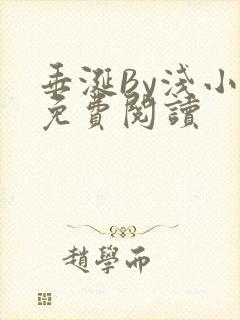 垂涎By淺小
免費閱讀
趙學而